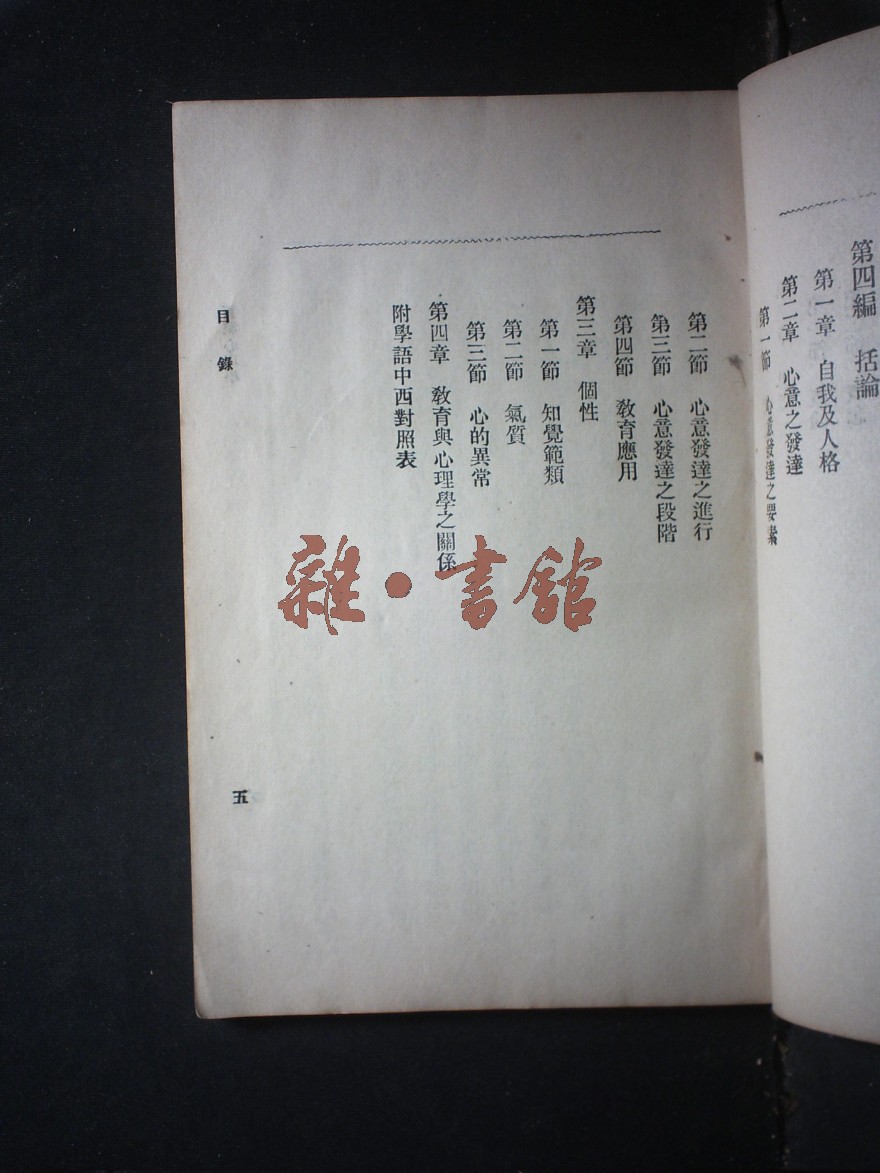 第四編 括論
第一章 自我及人格
第二章 心意之發達
第一節 心意發達之要素
第二節 心意發達之進行
第三節 心意發達之段階
第四節 敎育應用
第三章 個性
第一節 知覺範類
第二節 氣質
第三節 心的異常
第四章 敎育與心理學之關係
附學語中西對照表
目錄
五
雜·書館